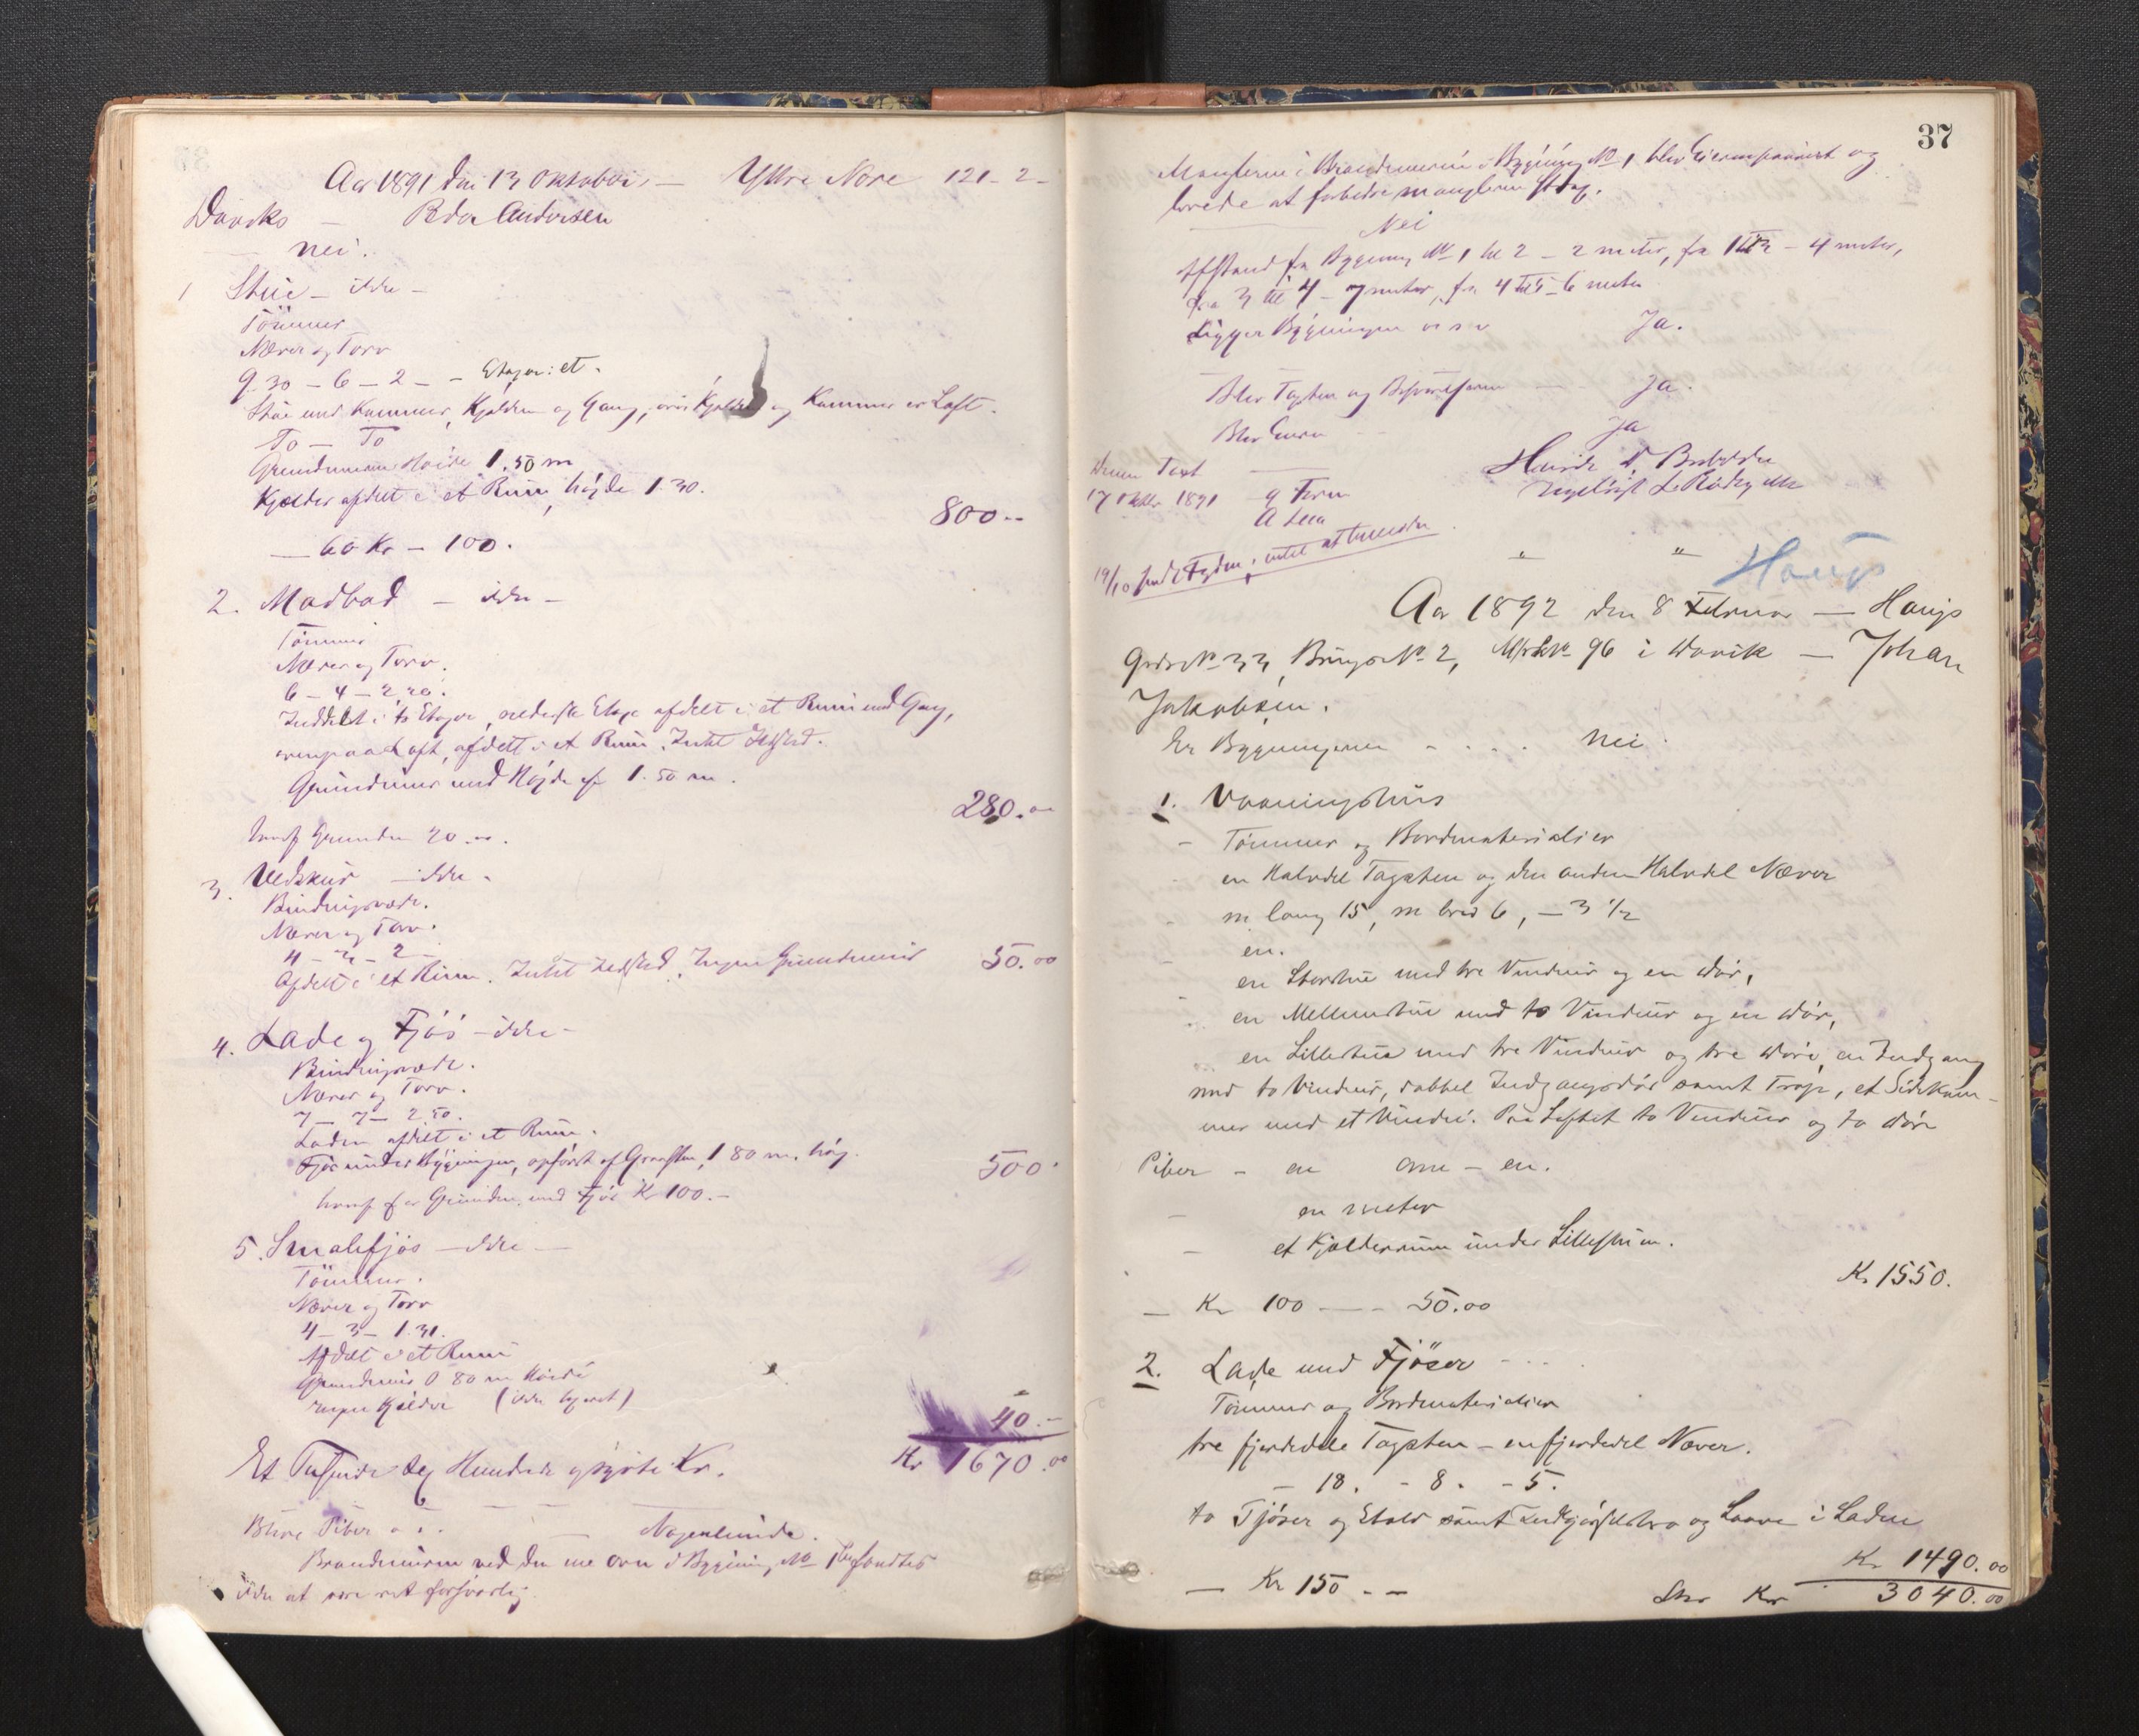 Aar 1891 den 13 Oktober, — Yttre Nore 121-2-
Daviks — Peder Andersen
— nei.
1 Stue — ikke —
Tömmer
Næver og Torv
9.30 — 6 — 2 — — Etager: et.
Stue med Kammer, Kjökken og Gang, over Kjökken og Kammer er Loft.
To — To
Grundmuren Höide 1.50 m
Kjælder afdelt i et Rum, höjde 1.30.
800 --
— 60 Kr — 100.
2. Madbod — ikke —
Tömmer
Næver og Torv.
6 — 4 — 2,20.
Inddelt i to Etager, nederste Etage afdelt i et Rum med Gang,
ovenpaa Loft, afdelt i et Rum. Intet Ildsted.
Grundmur med Højde af 1.50 m.
280.00
hvoraf Grunden 20.00.
3. Vedskur — ikke -
Bindingsværk.
Næver og Torv.
4 — 3 — 2 —
Afdelt i et Rum. Intet Ildsted. Ingen Grundmur 50.00
4. Lade og Fjös — ikke —
Bindingsværk.
Næver og Torv.
7 — 7 — 2.50.
Laden afdelt i et Rum.
Fjös under Bygningen, opfört af Graasten, 1 80 m. höj.
500
hvoraf for Grunden med Fjös Kr 100.—
5. Smalefjös — ikke —
Tömmer.
Næver og Torv
4 — 3 — 1.31.
Afdelt i et Rum
Grundmur 0 80 m Höide
ingen Kjelder
40.—
Et Tusinde sex Hundrede og sytti Kr. Kr 1670.00
Blive Piber o. s. — — — Nogenlunde.
Brandmuren ved den ene Ovn i Bygning No 1 befandtes
ikke at være ret forsvarlig.
37
Manglerne i Brandmuren i Bygning No 1 blev Eieren paavist og
lovede at forbedre manglerne strax.
Nei
Afstand fra Bygning No 1 til 2 — 2 meter, fra 1 til 3 — 4 meter,
fra 3 til 4 — 7 meter, fra 4 til 5 — 6 meter
Ligger Bygningen o s v Ja.
Blev Taxten og Beskrivelsen — - Ja.
Blev Eieren — Ja
17 Oktbr 1891
Haug
Aar 1892 den 8 Februar — Haugs
Grds No 33, Brugs No 2, Mtrk No 96 i Davik — Johan
Jakobsen.
Er Bygningerne - . . . nei.
1. Vaaningshus
- Tömmer og Bordmaterialier
- en Halvdel Tagsten og den anden Halvdel Næver
- m lang 15, m bred 6, — 3 1/2
- en.
- en Storstue med tre Vinduer og en Dör,
en Mellemstue med to Vinduer og en Dör,
en Lillestue med tre Vinduer og tre Döre, en Indgang
med to Vinduer, dobbel Indgangsdör samt Trap, et Sidekam-
mer med et Vindu. Paa Loftet to Vinduer og to Döre
Piber - en Ovn — en.
— en meter
— et Kjælderrum under Lillestuen.
Kr 1550.
— Kr 100 — - 50.00
2. Lade med Fjöser - - -
Tömmer og Bordmaterialier
tre fjerdedele Tagsten — en fjerdedel Næver.
— 18. - 8. - 5.
to Fjöser og Stald samt Indkjörselsbro og Laave i Laden
Kr 1490.00
— Kr 150 - - Kr 3040.00